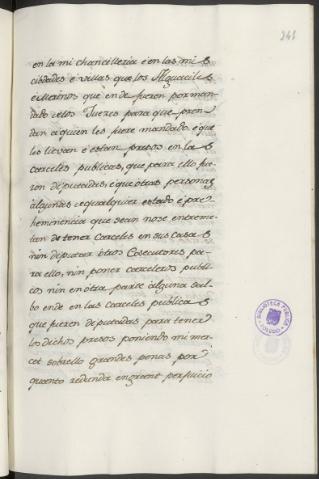 241
en la mi chancilleria e en las mis
cibdades e villas que los Alguaciles
e Merinos que ende fueren por man-
dado de los Jueces para que pren-
dan a quien les fuere mandado e que
los lievan e estan presos en las
carceles publicas, que para ello fue-
ron deputadas, e que otras personas
algunas e qualquier estado e pre-
heminencia que sean no se entreme-
tan de tener carceles en sus casas
nin deputar otros Executores pa-
ra ello, nin poner carceleros publi-
cos nin en otra parte alguna sal-
bo ende en las carceles publicas
que fueren deputadas para tener
los dichos presos poniendo mi mer-
cet sobrello grandes penas por
quanto redunda en grant perjuicio
BIBLIOTECA PUBLICA
TOLEDO